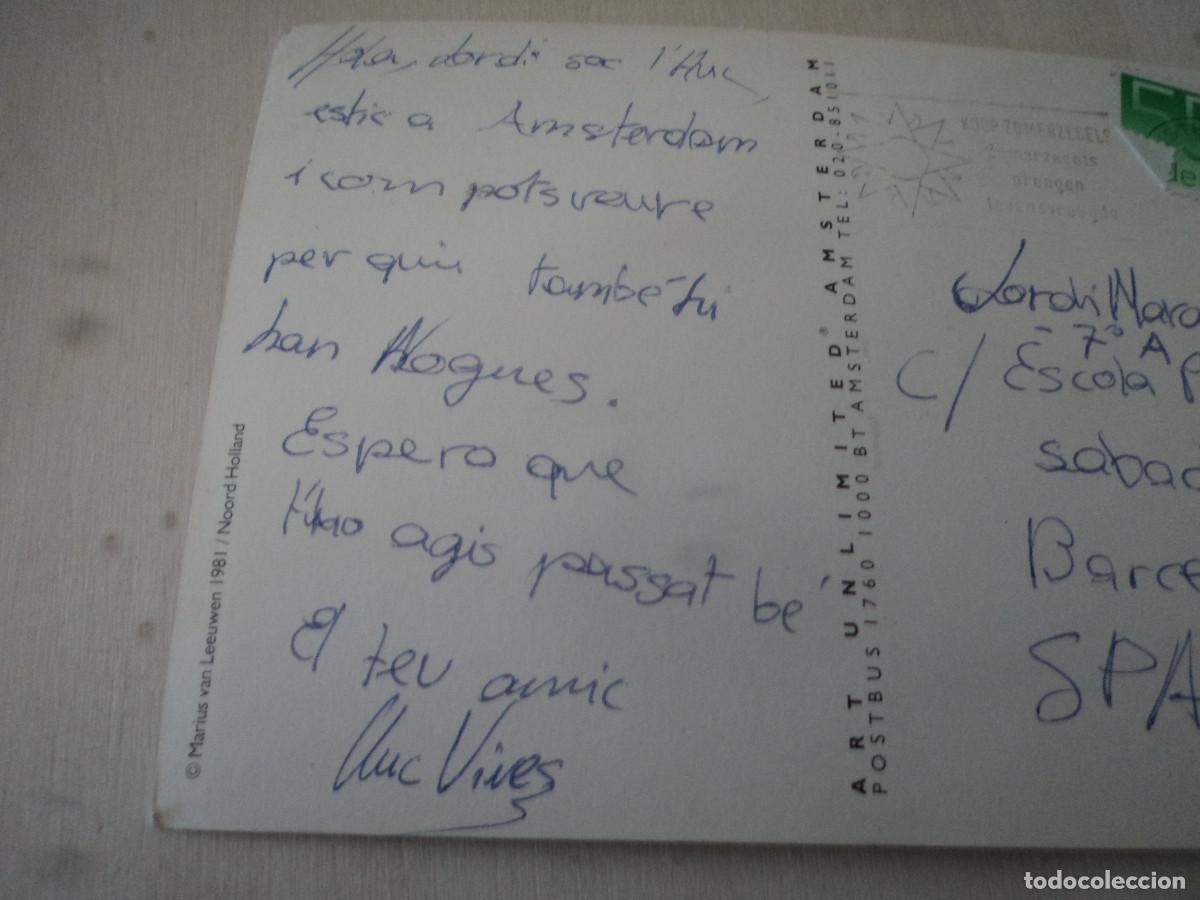 Hola, Jordi soc l'lluc,
estic a Amsterdam
i com pots veure
per quin també hi
han Nogues.
Espero que
t'ho agis passat bé
El teu amic
lluc Vives
© Marius van Leeuwen 1981 / Noord Holland
ART UNLIMITED® AMSTERDAM
POSTBUS 1760 1000 BT AMSTERDAM TEL: 020-851011
KOOP ZOMERZEGELS
Zomerzegels
brengen
levensvreugde
de
Jordi Mara
7º A
C/ Escola P
Sabad
Barce
SPA
todocoleccion